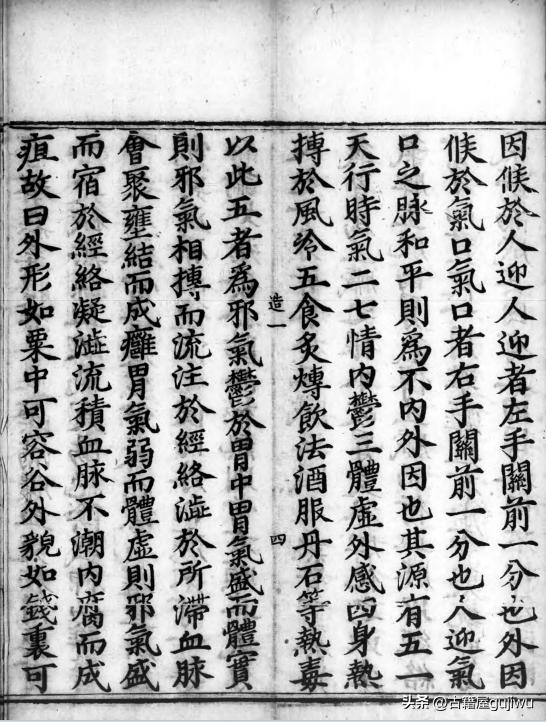 因候於人迎人迎者左手關前一分也外因
候於氣口氣口者右手關前一分也人迎氣
口之脉和平則為不内外因也其源有五一
天行時氣二七情内鬱三體虚外感四身熱
搏於風冷五食炙煿飲法酒服丹石等熱毒
造一
四
以此五者為邪氣鬱於胃中胃氣盛而體實
則邪氣相搏而流注於經絡澁於所滯血脉
會聚壅結而成癰胃氣弱而體虚則邪氣盛
而宿於經絡凝澁流積血脉不潮内腐而成
疽故曰外形如粟中可容谷外貌如錢裏可
头条 @古籍屋gujiwu